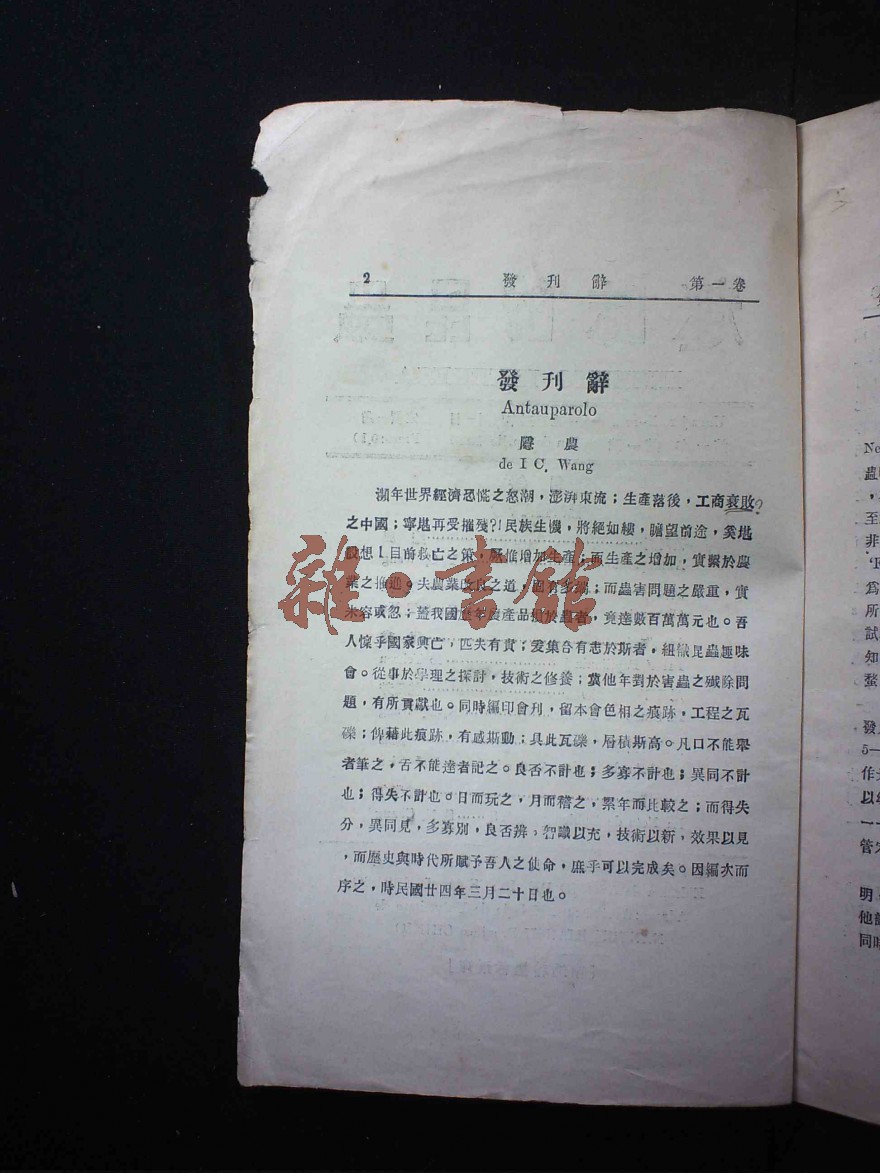 2 發刊辭 第一卷
發刊辭
Antauparolo
農
de I C. Wang
瀕年世界經濟恐慌之怒潮，澎湃東流；生產落後，工商衰敗?
之中國；寧堪再受摧殘?!民族生機，將絕如縷，瞻望前途，奚堪
設想！目前救亡之策，厥惟增加生產；而生產之增加，實繫於農
業之推進。夫農業改良之道，固有多端；而蟲害問題之嚴重，實
未容或忽；蓋我國歷年農產品損於蟲者，竟達數百萬萬元也。吾
人懍乎國家興亡，匹夫有責；爰集合有志於斯者，組織昆蟲趣味
會。從事於學理之探討，技術之修養；冀他年對於害蟲之殲除問
題，有所貢獻也。同時編印會刊，留本會色相之痕跡，工程之瓦
礫；俾藉此痕跡，有感斯動；具此瓦礫，層積斯高。凡口不能舉
者筆之，舌不能達者記之。良否不計也；多寡不計也；異同不計
也；得失不計也。日而玩之，月而稽之，累年而比較之；而得失
分，異同見，多寡別，良否辨。智識以充，技術以新，效果以見
，而歷史與時代所賦予吾人之使命，庶乎可以完成矣。因編次而
序之，時民國廿四年三月二十日也。
雜·書館
Ne
蟲
，
至
非
爲
所
試
知
螯
發
5—
作
以
一一
管
明
他
同時